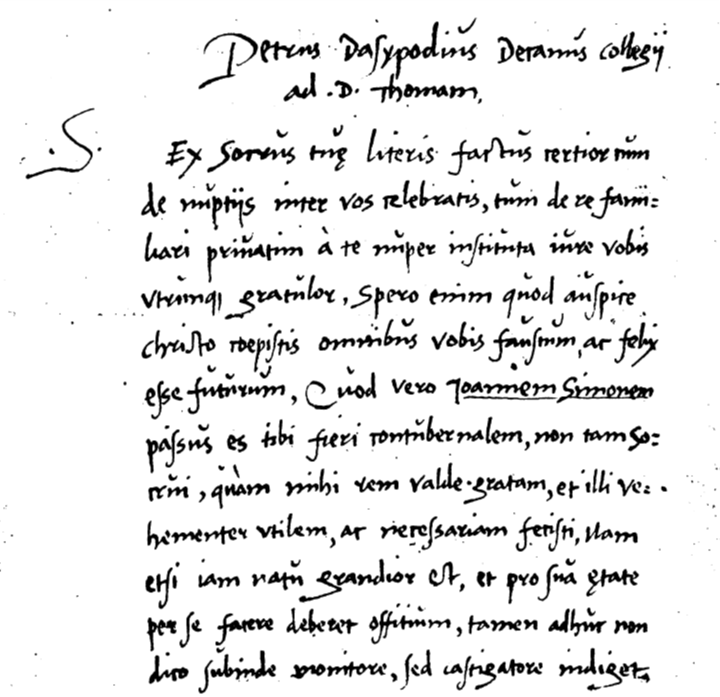 Petrus Dasypodius Decanus collegii
ad .D. Thomam.
.S.
Ex Socrus tuę literis factus certior cum
de nuptijs inter vos celebratis, tum de re fami=
liari priuatim à te nuper instituta iure vobis
vtrunq; gratulor, Spero enim quod auspice
christo coepistis omnibus vobis faustum, ac felix
esse futurum, Quod vero Joannem Simonem
passus es tibi fieri contubernalem, non tam So=
crui, quàm mihi rem valde gratam, et illi ve=
hementer vtilem, ac necessariam fecisti, Nam
etsi iam natu grandior est, et pro sua ętate
per se facere deberet offitium, tamen adhuc non
dico subinde monitore, sed castigatore indiget,